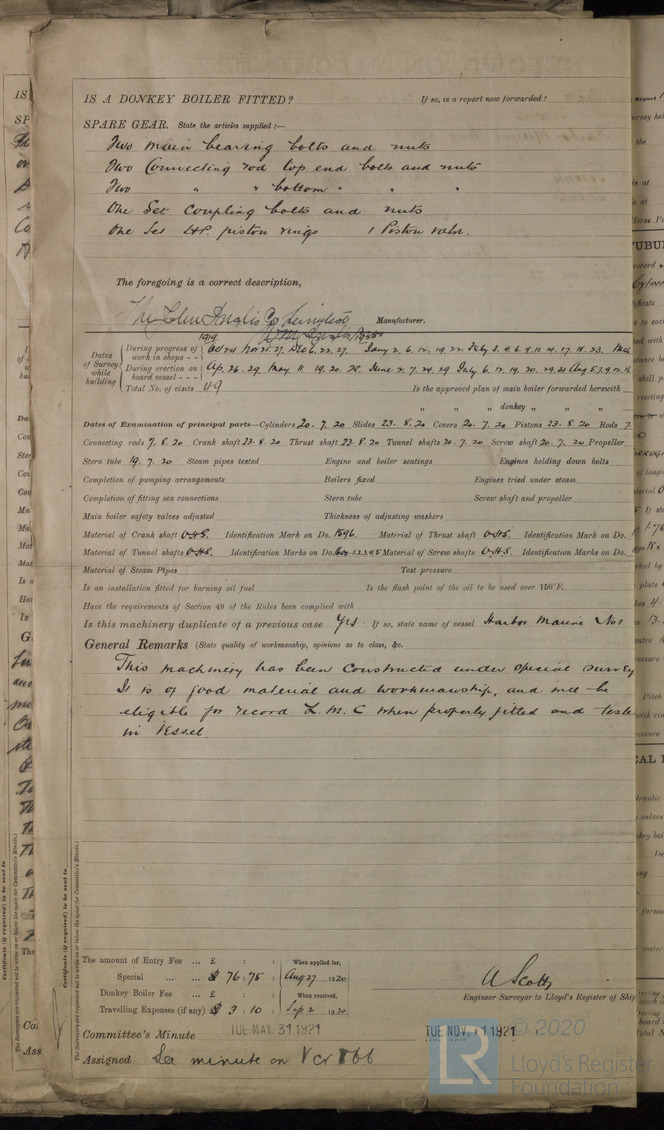 IS A DONKEY BOILER FITTED? If so, is a report now forwarded?
SPARE GEAR. State the articles supplied:—
Two main bearing bolts and nuts
Two Connecting rod top end bolts and nuts
Two " " bottom " " "
One Set Coupling bolts and nuts
One Set H.P. piston rings 1 Piston valv.
The foregoing is a correct description,
The John Inglis Co Limited Manufacturer.
1919 1920
Dates of Survey while building
During progress of work in shops - - Oct 24 Nov 21. 27. Dec 6. 22. 27. Jany 2. 6. 12. 19. 22. Feby 3. 4. 6. 9. 11. 14. 17. 18. 23.
During erection on board vessel - - - Ap. 26. 29. May. 11. 19. 20. 28. June 2. 7. 24. 29 July 6. 12. 19. 20. 29. 20 Aug 5. 7. 9. 12. 16
Total No. of visits 49 Is the approved plan of main boiler forwarded herewith
" " " donkey " " "
Dates of Examination of principal parts—Cylinders 20. 7. 20 Slides 23. 8. 20 Covers 20. 7. 20 Pistons 23. 8. 20 Rods 7.
Connecting rods 7. 8. 20 Crank shaft 23. 8. 20 Thrust shaft 23. 8. 20 Tunnel shafts 20. 7. 20 Screw shaft 20. 7. 20 Propeller
Stern tube 19. 7. 20 Steam pipes tested Engine and boiler seatings Engines holding down bolts
Completion of pumping arrangements Boilers fixed Engines tried under steam
Completion of fitting sea connections Stern tube Screw shaft and propeller
Main boiler safety valves adjusted Thickness of adjusting washers
Material of Crank shaft O.H.S. Identification Mark on Do. 1596. Material of Thrust shaft O.H.S. Identification Mark on Do.
Material of Tunnel shafts O.H.S. Identification Marks on Do. 1.2.3.4.5 Material of Screw shafts O.H.S. Identification Marks on Do.
Material of Steam Pipes Test pressure
Is an installation fitted for burning oil fuel Is the flash point of the oil to be used over 150°F.
Have the requirements of Section 49 of the Rules been complied with
Is this machinery duplicate of a previous case Yes If so, state name of vessel Harbor Marine No 1
General Remarks (State quality of workmanship, opinions as to class, &c.
This machinery has been constructed under special survey
It is of good material and workmanship, and will be
eligible for record L.M.C when properly fitted and teste
in Vessel
Certificate (if required) to be sent to
The Surveyors are requested not to write on or below the space for Committee's Minute.
The amount of Entry Fee ... £ : : When applied for,
Special ... ... $ 76.75 : Aug 27 1920
Donkey Boiler Fee ... £ : : When received,
Travelling Expenses (if any) $ 3 : 10 : Sep 2 1920
A Scott
Engineer Surveyor to Lloyd's Register of Ship
Committee's Minute TUE. MAY. 31 1921 TUE. NOV. 1 1921
Assigned See minute on
© 2020
LR
Lloyd's Register
Foundation